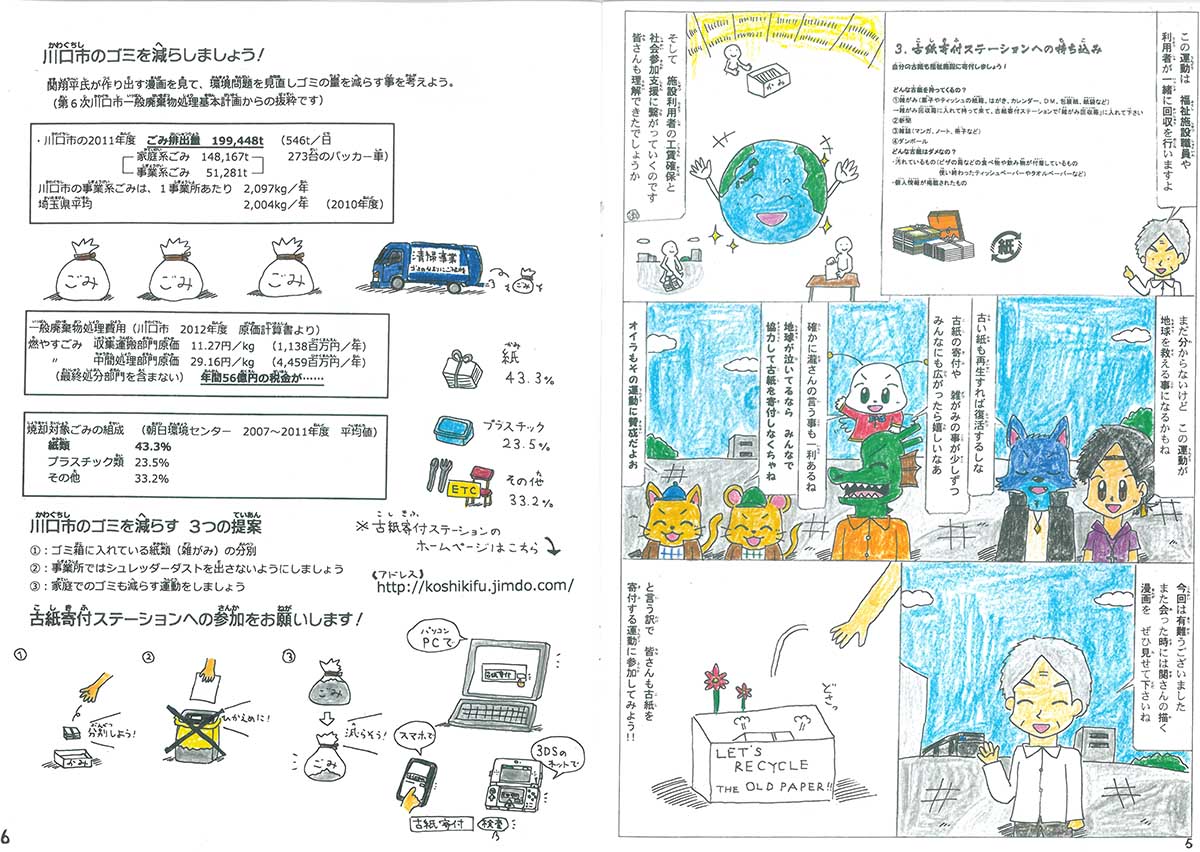 この運動は 福祉施設職員や
利用者が一緒に回収を行いますよ
3．古紙寄付ステーションへの持ち込み
自分の古紙も福祉施設に寄付しましょう！
どんな古紙を持ってくるの？
①雑がみ（菓子やティッシュの紙箱、はがき、カレンダー、DM、包装紙、紙袋など）
→雑がみ回収箱に入れて持って来て、古紙寄付ステーションで「雑がみ回収箱」に入れて下さい
②新聞
③雑誌（マンガ、ノート、冊子など）
④ダンボール
どんな古紙はダメなの？
・汚れているもの（ピザの箱などの食べ物や飲み物が付着しているもの
使い終わったティッシュペーパーやタオルペーパーなど）
・個人情報が掲載されたもの
紙
かみ
そして 施設利用者の工賃確保と
社会参加支援に繋がっていくのです
皆さんも理解できたでしょうか
まだ分からないけど この運動が
地球を救える事になるかもね
古い紙も再生すれば復活するしな
古紙の寄付や 雑がみの事が少しずつ
みんなにも広がったら嬉しいなあ
確かに瀧さんの言う事も一利あるね
地球が泣いてるなら みんなで
協力して古紙を寄付しなくちゃね
オイラもその運動に賛成だよお
今回は有難うございました
また会った時には関さんの描く
漫画を ぜひ見せて下さいね
どさっ
LET'S
RECYCLE
THE OLD PAPER!!
と言う訳で 皆さんも古紙を
寄付する運動に参加してみよう！！
5
川口市のゴミを減らしましょう！
関翔平氏が作り出す漫画を見て、環境問題を見直しゴミの量を減らす事を考えよう。
（第6次川口市一般廃棄物処理基本計画からの抜粋です）
・川口市の2011年度 ごみ排出量 199,448t （546t／日
家庭系ごみ 148,167t 273台のパッカー車）
事業系ごみ 51,281t
川口市の事業系ごみは、1事業所あたり 2,097kg／年
埼玉県平均 2,004kg／年 （2010年度）
ごみ
ごみ
ごみ
清掃事業
ごみ
一般廃棄物処理費用（川口市 2012年度 原価計算書より）
燃やすごみ 収集運搬部門原価 11.27円／kg （1,138百万円／年）
〃 中間処理部門原価 29.16円／kg （4,459百万円／年）
（最終処分部門を含まない） 年間56億円の税金が……
焼却対象ごみの組成 （朝日環境センター 2007～2011年度 平均値）
紙類 43.3％
プラスチック類 23.5％
その他 33.2％
紙
43.3％
プラスチック
23.5％
ETC
その他
33.2％
川口市のゴミを減らす 3つの提案
①：ゴミ箱に入れている紙類（雑がみ）の分別
②：事業所ではシュレッダーダストを出さないようにしましょう
③：家庭でのゴミも減らす運動をしましょう
※古紙寄付ステーションの
ホームページはこちら
《アドレス》
http://koshikifu.jimdo.com/
古紙寄付ステーションへの参加をお願いします！
①
分別しよう！
かみ
②
ひかえめに！
③
ごみ
減らそう！
ごみ
パソコン
PCで
古紙寄付
スマホで
3DSの
ネットで
古紙寄付
検索
6